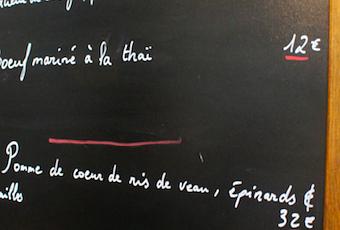 boeuf mariné à la thaï 12€
Pomme de coeur de ris de veau, Épinards &
32€